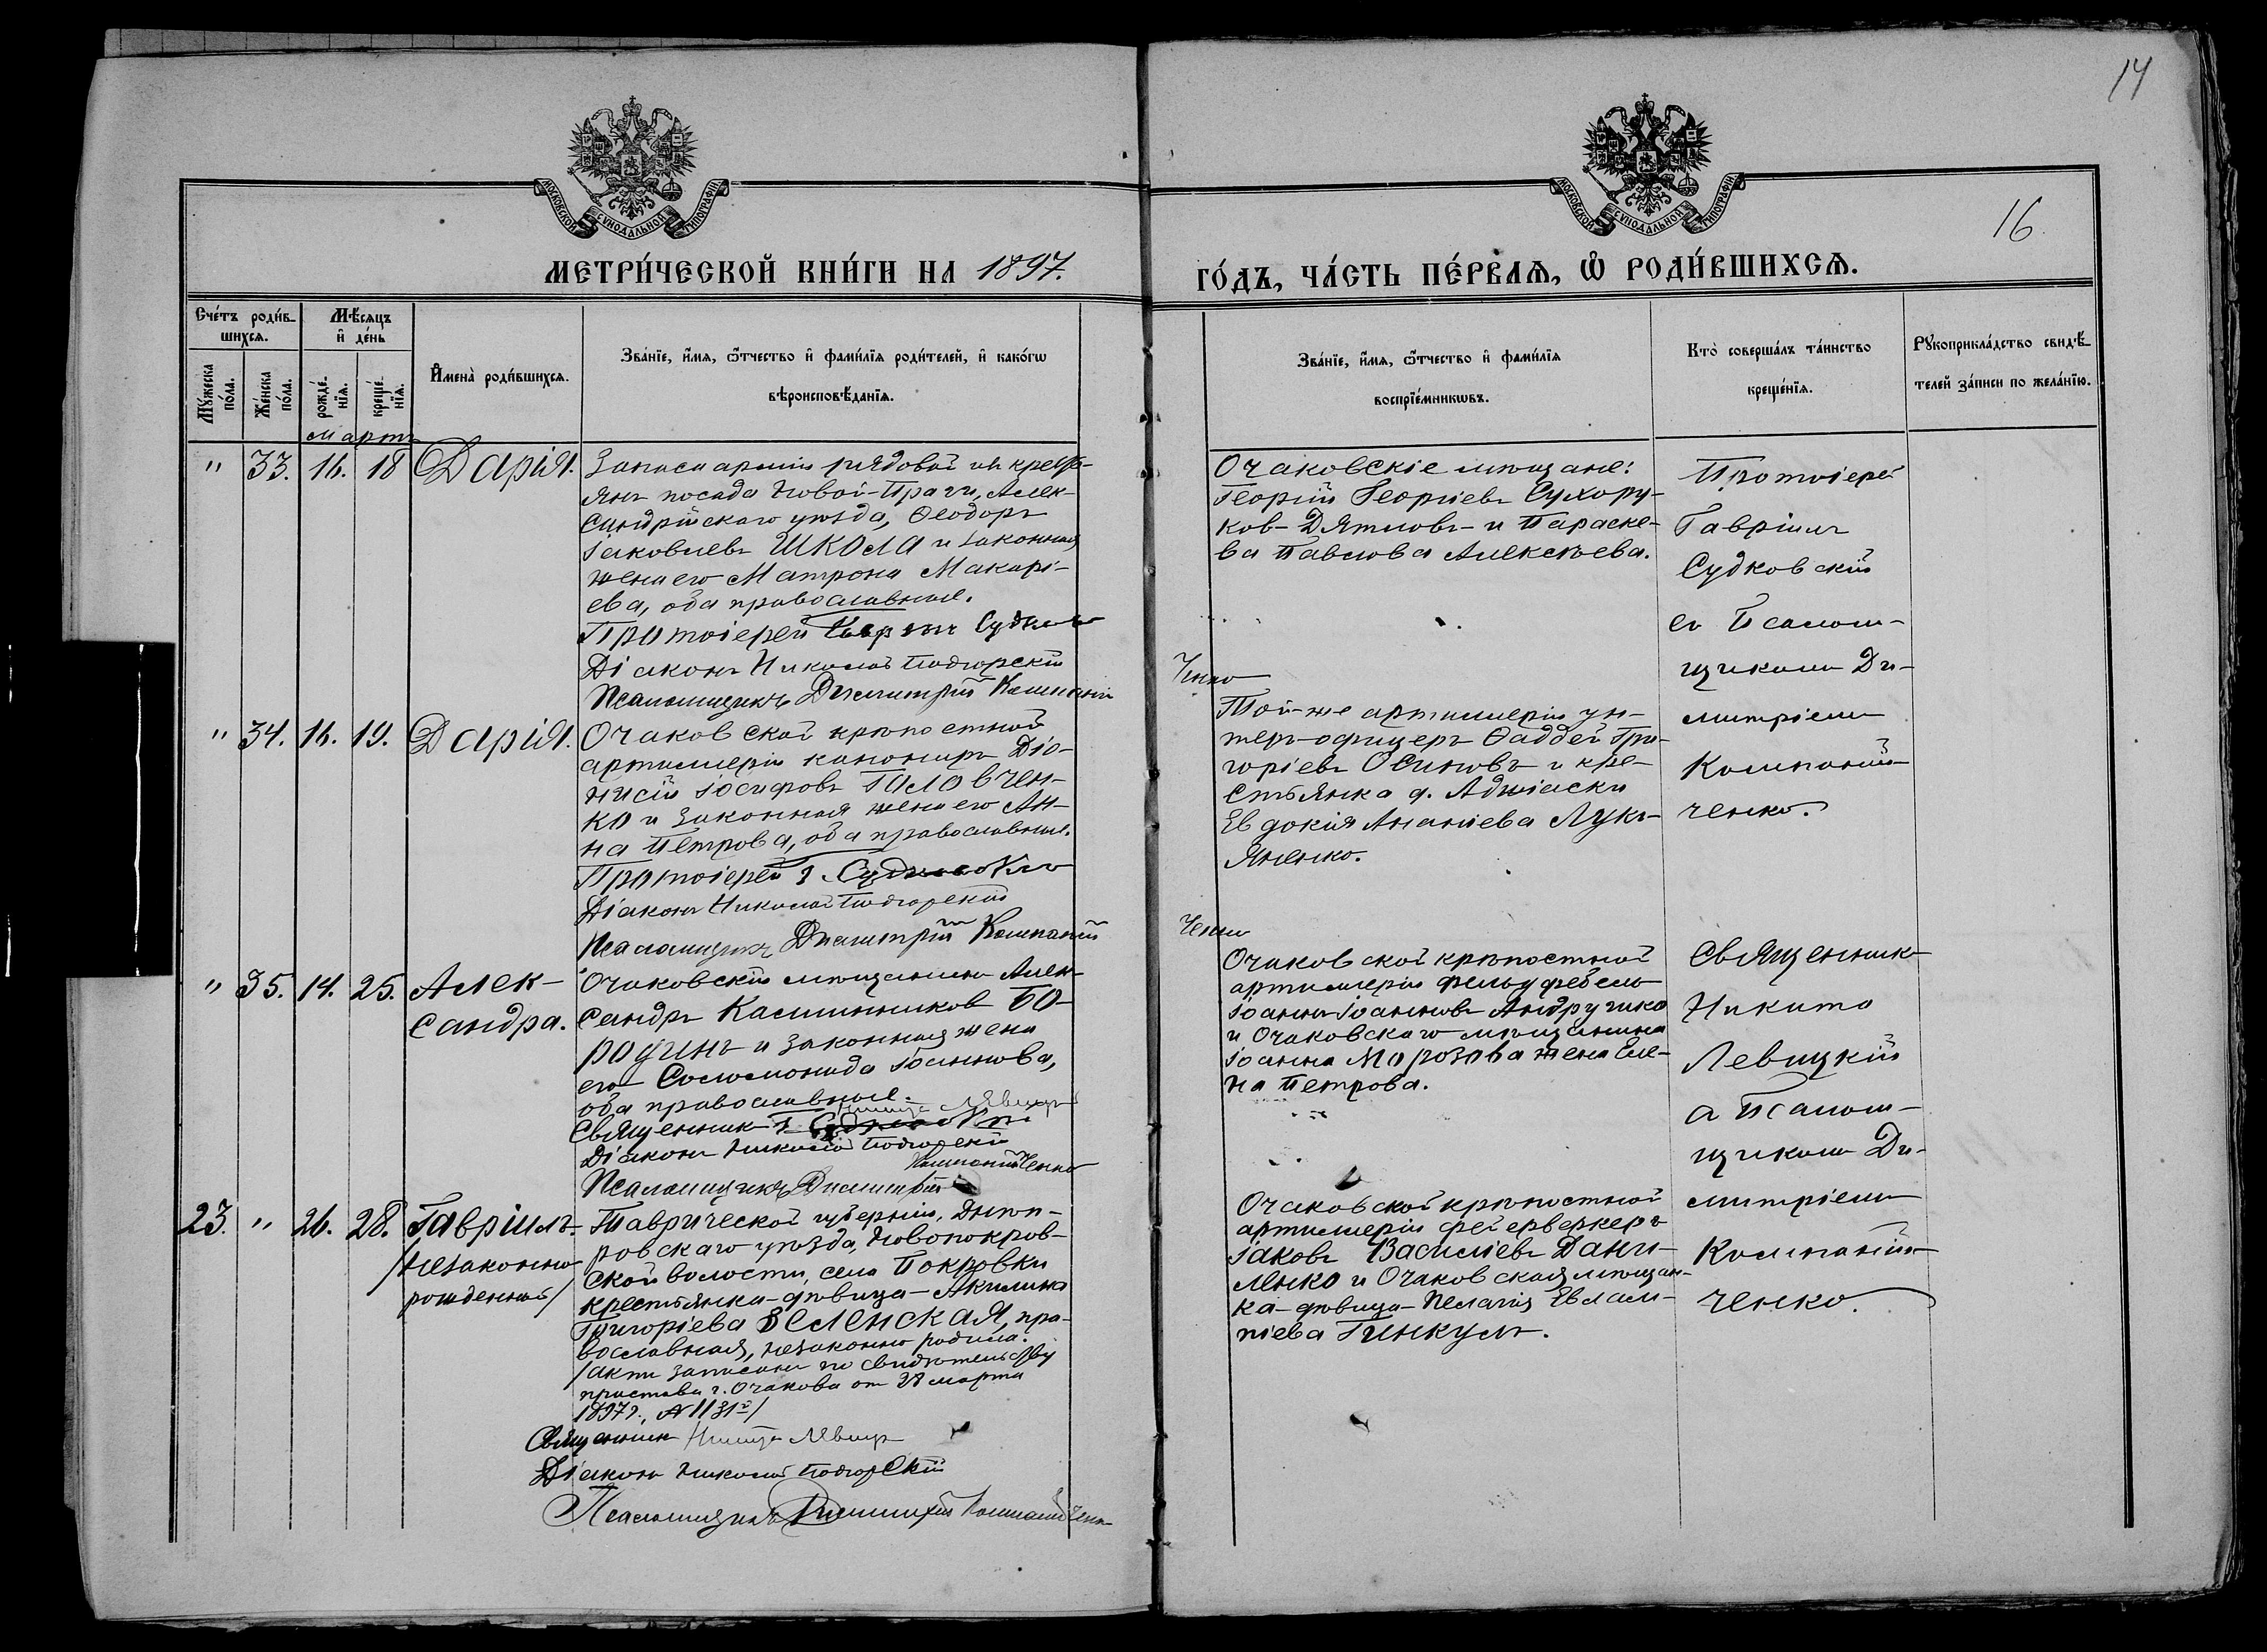 14
16
МОСКОВСКОЙ СѴНОДАЛЬНОЙ ТИПОГРАФІИ
МОСКОВСКОЙ СѴНОДАЛЬНОЙ ТИПОГРАФІИ
МЕТРИ́ЧЕСКОЙ КНИ́ГИ НА 1897.
ГО́ДЪ, ЧА́СТЬ ПЕ́РВАѦ, Ѡ҆ РОДИ́ВШИХСѦ.
Сче́тъ роди́в-
шихсѧ.
Мꙋ́жеска по́ла.
Же́нска по́ла.
Мѣ́сѧцъ
и҆ де́нь
рожде́-
нїѧ.
креще́-
нїѧ.
И҆мена̀ роди́вшихсѧ.
Зва́нїе, и҆́мѧ, ѻ҆́тчество и҆ фами́лїѧ роди́телей, и҆ како́гѡ
вѣроисповѣ́данїѧ.
Зва́нїе, и҆́мѧ, ѻ҆́тчество и҆ фами́лїѧ
воспрїе́мникѡвъ.
Кто̀ соверша́лъ та́инство
креще́нїѧ.
Рꙋкоприкла́дство свидѣ́-
телей за́писи по жела́нїю.
мартъ
" 33. 16. 18 Дарія.
Запаса арміи рядовой изъ кресть-
янъ посада Новой-Праги, Алек-
сандрійскаго уѣзда, Ѳеодоръ
Іаковлевъ Школа и законная
жена его Матрона Макарі-
ева, оба православные.
Протоіерей Гавріилъ Судков
Діаконъ Николай Подгорскій
Псаломщикъ Димитрій Компаній
ченко
Очаковскіе мѣщане:
Георгій Георгіевъ Сухору-
ков-Дятловъ и Параске-
ва Павлова Алексѣева.
Протоіерей
Гавріилъ
Судковскій
съ Псалом-
щикомъ Ди-
митріемъ
Компаній-
ченко.
" 34. 16. 19. Дарія.
Очаковской крѣпостной
артиллеріи канониръ Діо-
нисій Іосифовъ Головчен-
ко и законная жена его Ан-
на Петрова, оба православные.
Протоіерей Г. Судковск
Діаконъ Николай Подгорскій
Псаломщикъ Димитрій Компаній
ченко
Той-же артиллеріи ун-
теръ-офицеръ Ѳаддей Гри-
горіевъ Осиповъ и кре-
стьянка д. Аджіаски
Евдокія Ананіева Лукь-
яненко.
" 35. 14. 25. Алек-
сандра.
Очаковскій мѣщанинъ Алек-
сандръ Калинниковъ Бо-
родинъ и законная жена
его Соломонида Іоаннова,
оба православные.
Священникъ Никита Левицк
Діаконъ Николай Подгорскій
Псаломщикъ Димитрій Компанійченко
Очаковской крѣпостной
артиллеріи фельдфебель
Іоаннъ Іоанновъ Андрущко
и Очаковскаго мѣщанина
Іоанна Морозова жена Еле-
на Петрова.
Священникъ
Никита
Левицкій
съ Псалом-
щикомъ Ди-
митріемъ
Компаній-
ченко.
23. " 26. 28. Гавріилъ-
/незаконно
рожденный/
Таврической губерніи, Днѣп-
ровскаго уѣзда, Новопокров-
ской волости, села Покровки
крестьянка-дѣвица-Акилина
Григоріева Зеленская, пра-
вославная, незаконно родила.
/актъ записанъ по свидѣтельству
пристава г. Очакова от 28 марта
1897 г., № 1131/
Священникъ Никита Левицк
Діаконъ Николай Подгорскій
Псаломщикъ Димитрій Компанійченко
Очаковской крѣпостной
артиллеріи фейерверкеръ
Іаковъ Василіевъ Дани-
ленко и Очаковская мѣщан-
ка-дѣвица-Пелагія Евлам-
піева Гинкулъ.